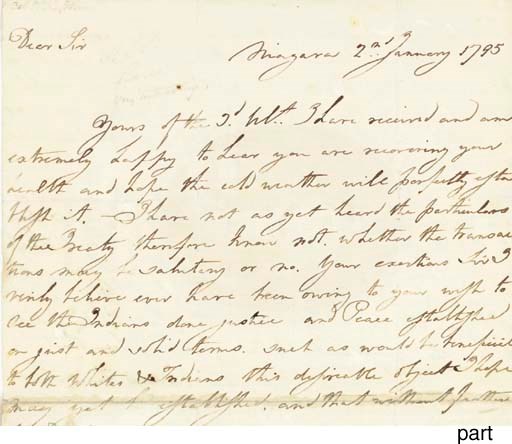 Dear Sir
Niagara 2nd January 1795
Yours of the 3d Ult. I have received and am
extremely happy to hear you are recovering your
health and hope the cold weather will perfectly esta
blish it. — I have not as yet heard the particulars
of the Treaty therefore know not whether the transac
tions may be salutary or no. Your exertions Sir I
verily believe ever have been owing to your wish to
see the Indians done justice and Peace established
on just and solid terms. such as would be beneficial
to both Whites & Indians this desireable object I hope
may yet be established. and that without further
part